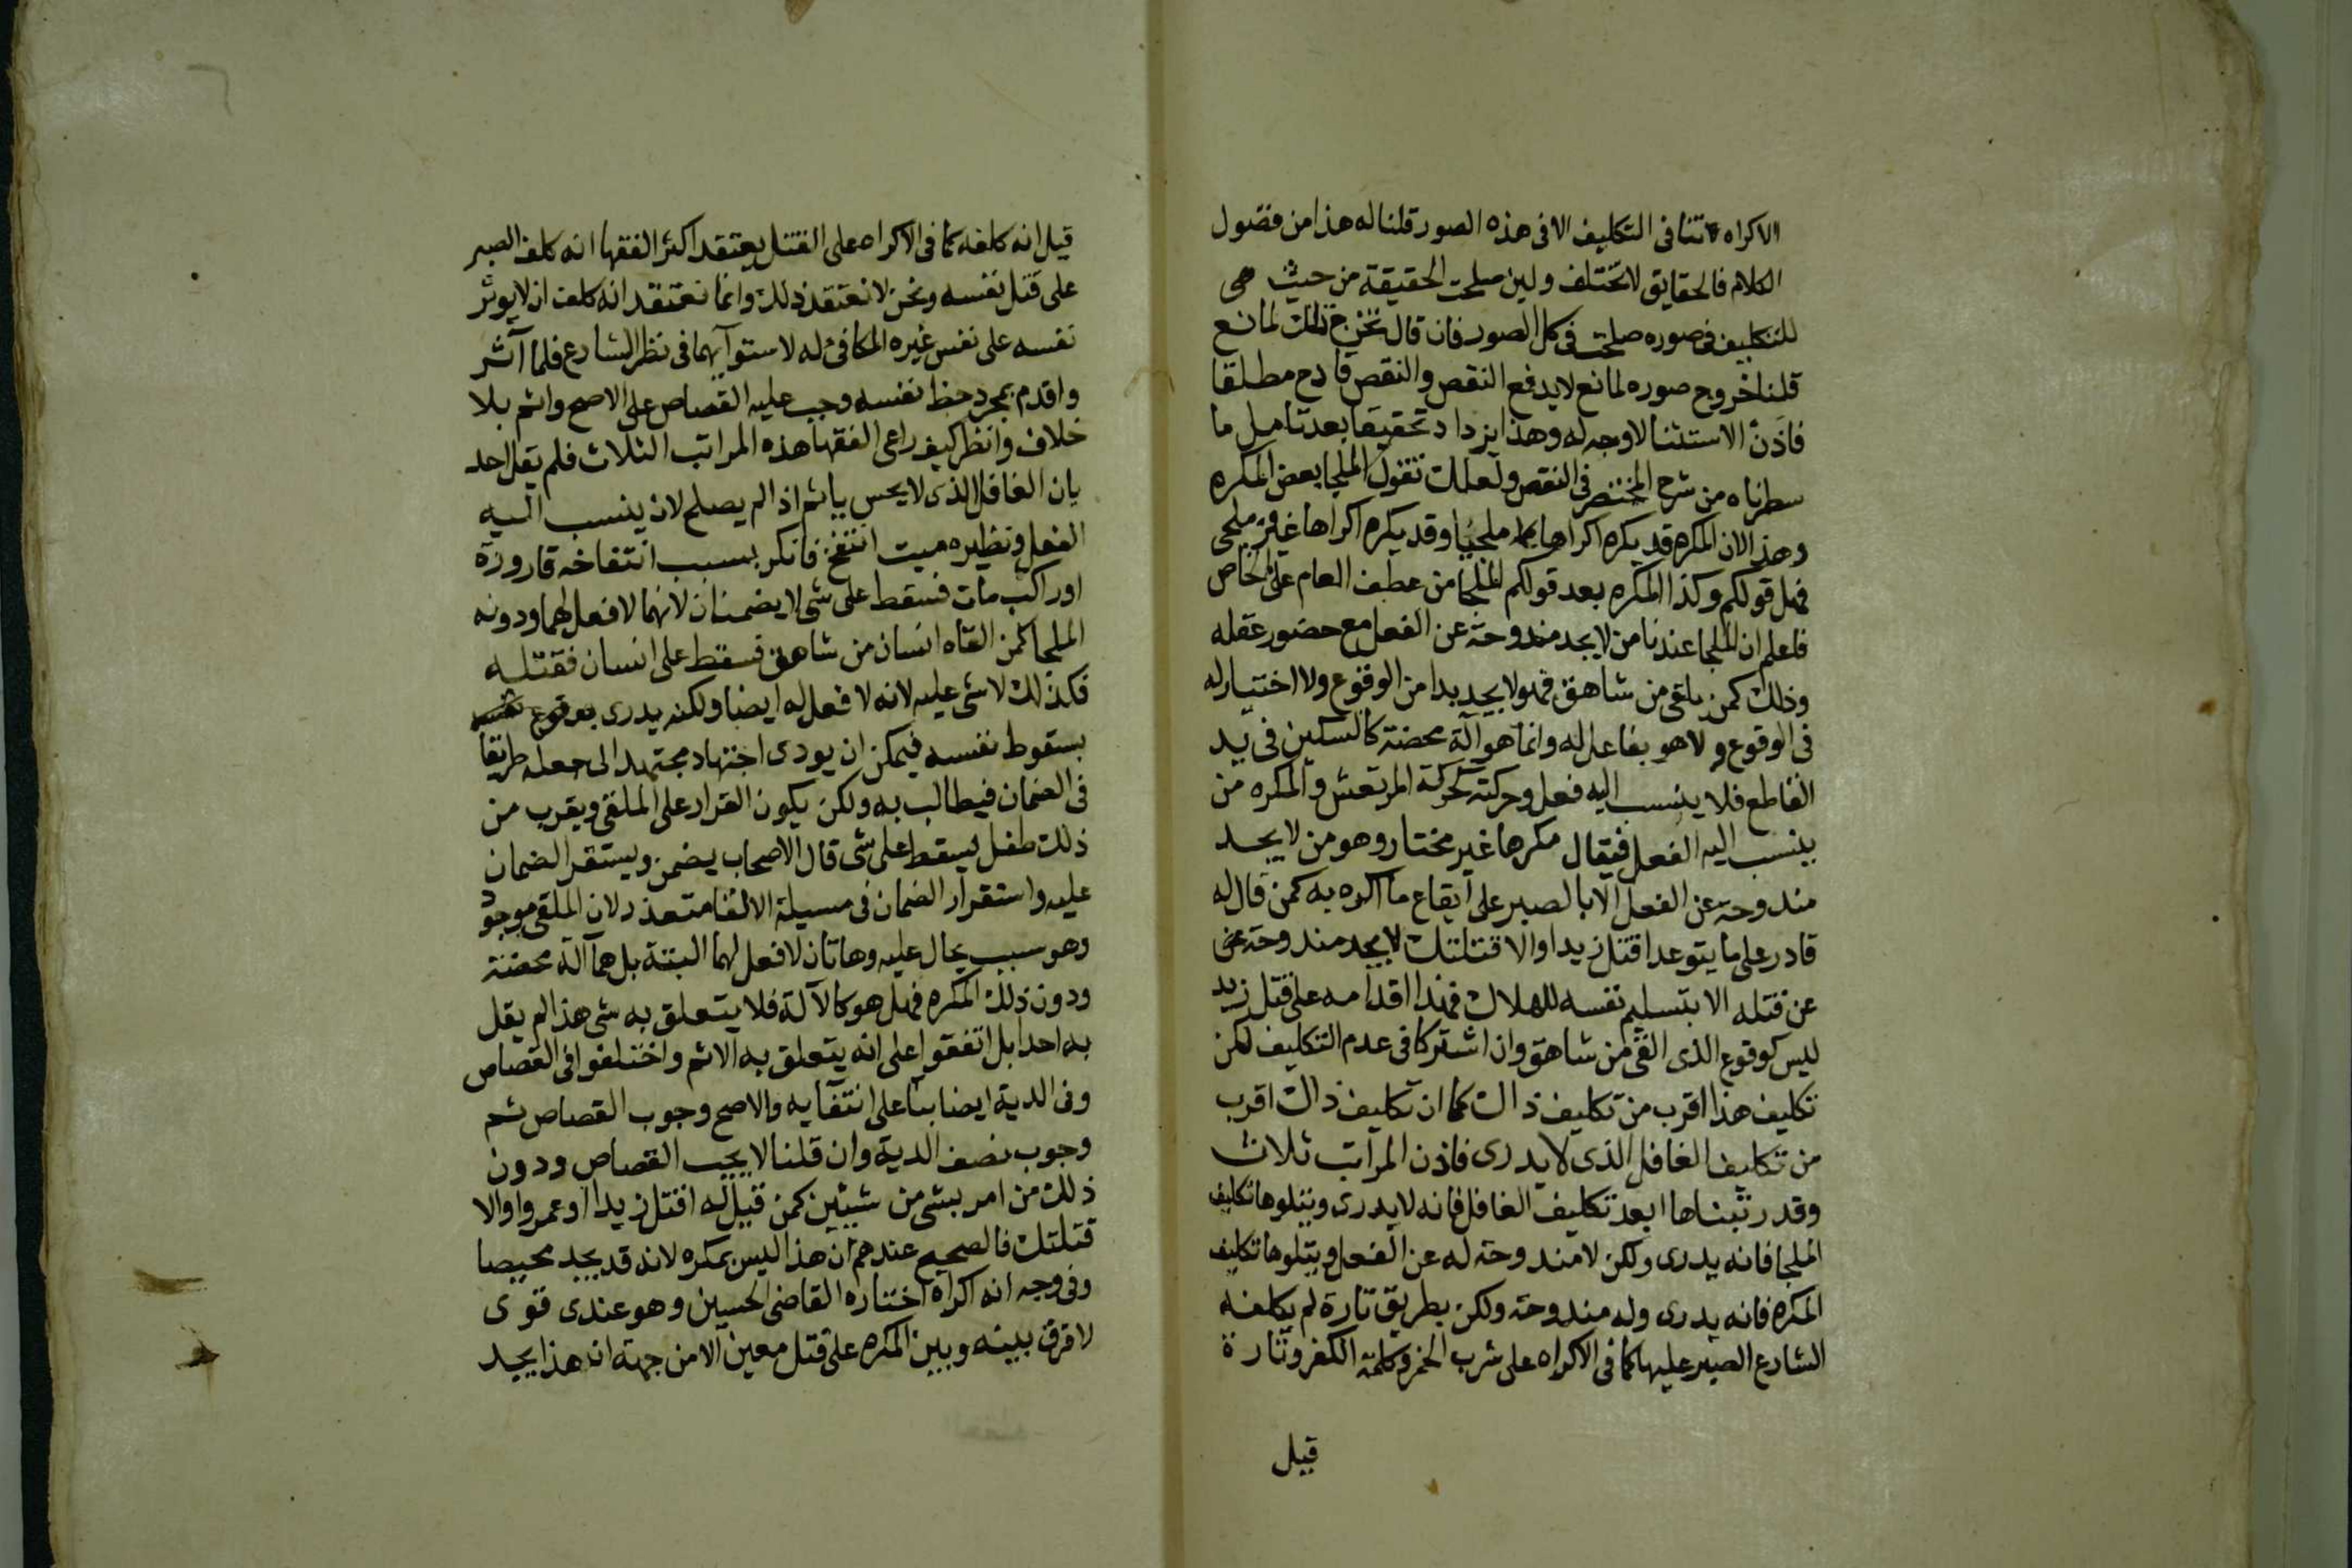 الاكراه لا تنافى التكليف الا فى هذه الصور قلنا له هذا من فضول
الكلام فالحقايق لا تختلف ولين صلحت الحقيقة من حيث هى
للتكليف فى صوره صلحت فى كل الصور فان قال نخرج ذلك لمانع
قلنا خروج صوره لمانع لا يدفع النقض والنقض قادح مطلقا
فاذن الاستثنا لا وجه له وهذا يزداد تحقيقا بعد تامل ما
سطرناه من شرح المختصر فى النقض ولعلك تقول الملجا بعض المكره
وهذا لان المكره قد يكره اكراها ملجيا وقد يكره اكراها غير ملجى
فهل قولكم وكذا المكره بعد قولكم الملجا من عطف العام على الخاص
فاعلم ان الملجا عندنا من لا يجد مندوحة عن الفعل مع حضور عقله
وذلك كمن يلقى من شاهق فهو لا يجد بدا من الوقوع ولا اختيار له
فى الوقوع ولا هو بفاعل له وانما هو آلة محضة كالسكين فى يد
القاطع فلا ينسب اليه فعل وحركته كحركة المرتعش والمكره من
ينسب اليه الفعل فيقال مكرها غير مختار وهو من لا يجد
مندوحة عن الفعل الا بالصبر على ايقاع ما اكره به كمن قال له
قادر على ما يتوعد اقتل زيدا والا قتلتك لا يجد مندوحة
عن قتله الا بتسليم نفسه للهلاك فهذا اقدامه على قتل زيد
ليس كوقوع الذى القى من شاهق وان اشتركا فى عدم التكليف لكن
تكليف هذا اقرب من تكليف ذاك كما ان تكليف ذاك اقرب
من تكليف الغافل الذى لا يدرى فاذن المراتب ثلاث
وقد رتبناها ابعد تكليف الغافل فانه لا يدرى ويتلوها تكليف
الملجا فانه يدرى ولكن لا مندوحة له عن الفعل ويتلوها تكليف
المكره فانه يدرى وله مندوحة ولكن بطريق تارة لم يكلفه
الشارع الصبر عليها كما فى الاكراه على شرب الخمر وكلمة الكفر وتارة
قيل
قيل انه كلفه كما فى الاكراه على القتل يعتقد اكثر الفقها انه كلف الصبر
على قتل نفسه ونحن لا نعتقد ذلك وانما نعتقد انه كلف ان لا يوثر
نفسه على نفس غيره المكافئ له لاستوآيهما فى نظر الشارع فلما آثر
واقدم بمجرد حظ نفسه وجب عليه القصاص على الاصح واثم بلا
خلاف وانظر كيف راعى الفقها هذه المراتب الثلاث فلم يقل احد
بان الغافل الذى لا يحس ياثم اذ الم يصلح لان ينسب اليه
الفعل ونظيره ميت انتفخ فانكر بسبب انتفاخه قارورة
اوراكب مات فسقط على شى لا يضمنان لانهما لا فعل لهما ودونه
الملجا كمن القاه انسان من شاهق فسقط على انسان فقتله
فكذلك لا شى عليه لانه لا فعل له ايضا ولكنه يدرى بوقوع
بسقوط نفسه فيمكن ان يودى اجتهاد مجتهد الى جعله طريقا
فى الضمان فيطالب به ولكن يكون القرار على الملقى ويقرب من
ذلك طفل يسقط على شى قال الاصحاب يضمن ويستقر الضمان
عليه واستقرار الضمان فى مسيلة الالقا متعذر لان الملقى موجود
وهو سبب يحال عليه وهاتان لا فعل لهما البتة بل هما آلة محضة
ودون ذلك المكره فهل هو كالآلة فلا يتعلق به شى هذا لم يقل
به احد بل اتفقوا على انه يتعلق به الاثم واختلفوا فى القصاص
وفى الدية ايضا بنآ على انتفآيه والاصح وجوب القصاص ثم
وجوب نصف الدية وان قلنا لا يجب القصاص ودون
ذلك من امر بشى من شيئين كمن قيل له اقتل زيدا او عمروا والا
قتلتك فالصحيح عندهم ان هذا ليس بمكره لانه قد يجد محيصا
وفى وجه انه اكراه اختاره القاضى الحسين وهو عندى قوى
لا فرق بينه وبين المكره على قتل معين الا من جهة ان هذا يجد